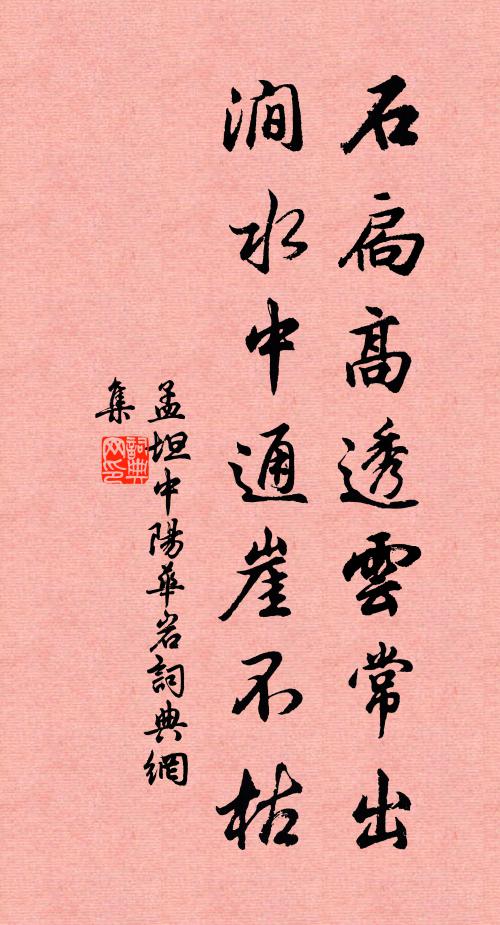 石扃高透雲常出
澗水中通崖不枯
孟坦中陽華岩詞典網
集
詞典
網印